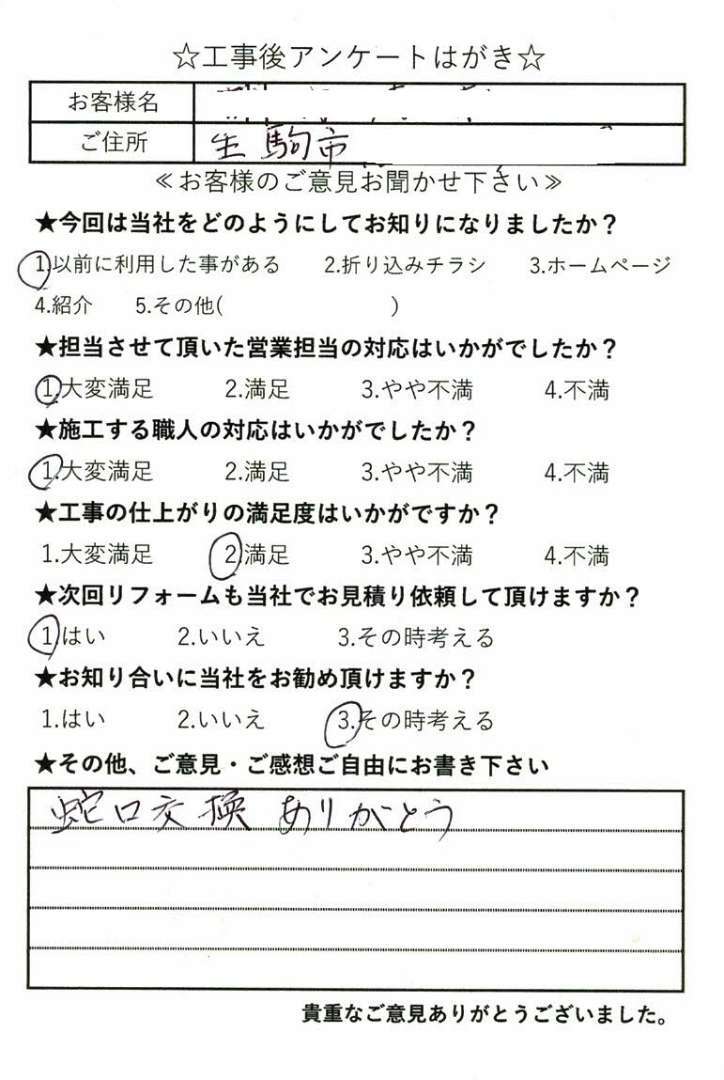 ☆工事後アンケートはがき☆
お客様名
ご住所 生駒市
≪お客様のご意見お聞かせ下さい≫
★今回は当社をどのようにしてお知りになりましたか？
1.以前に利用した事がある 2.折り込みチラシ 3.ホームページ
4.紹介 5.その他( )
★担当させて頂いた営業担当の対応はいかがでしたか？
1.大変満足 2.満足 3.やや不満 4.不満
★施工する職人の対応はいかがでしたか？
1.大変満足 2.満足 3.やや不満 4.不満
★工事の仕上がりの満足度はいかがですか？
1.大変満足 2.満足 3.やや不満 4.不満
★次回リフォームも当社でお見積り依頼して頂けますか？
1.はい 2.いいえ 3.その時考える
★お知り合いに当社をお勧め頂けますか？
1.はい 2.いいえ 3.その時考える
★その他、ご意見・ご感想ご自由にお書き下さい
蛇口交換 ありがとう
貴重なご意見ありがとうございました。